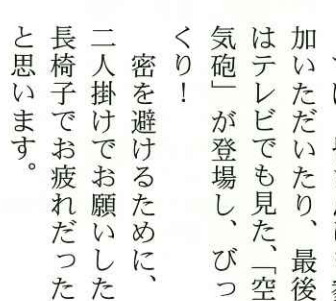 加いただいたり、最後
はテレビでも見た、「空
気砲」が登場し、びっ
くり！
密を避けるために、
二人掛けでお願いした
長椅子でお疲れだった
と思います。